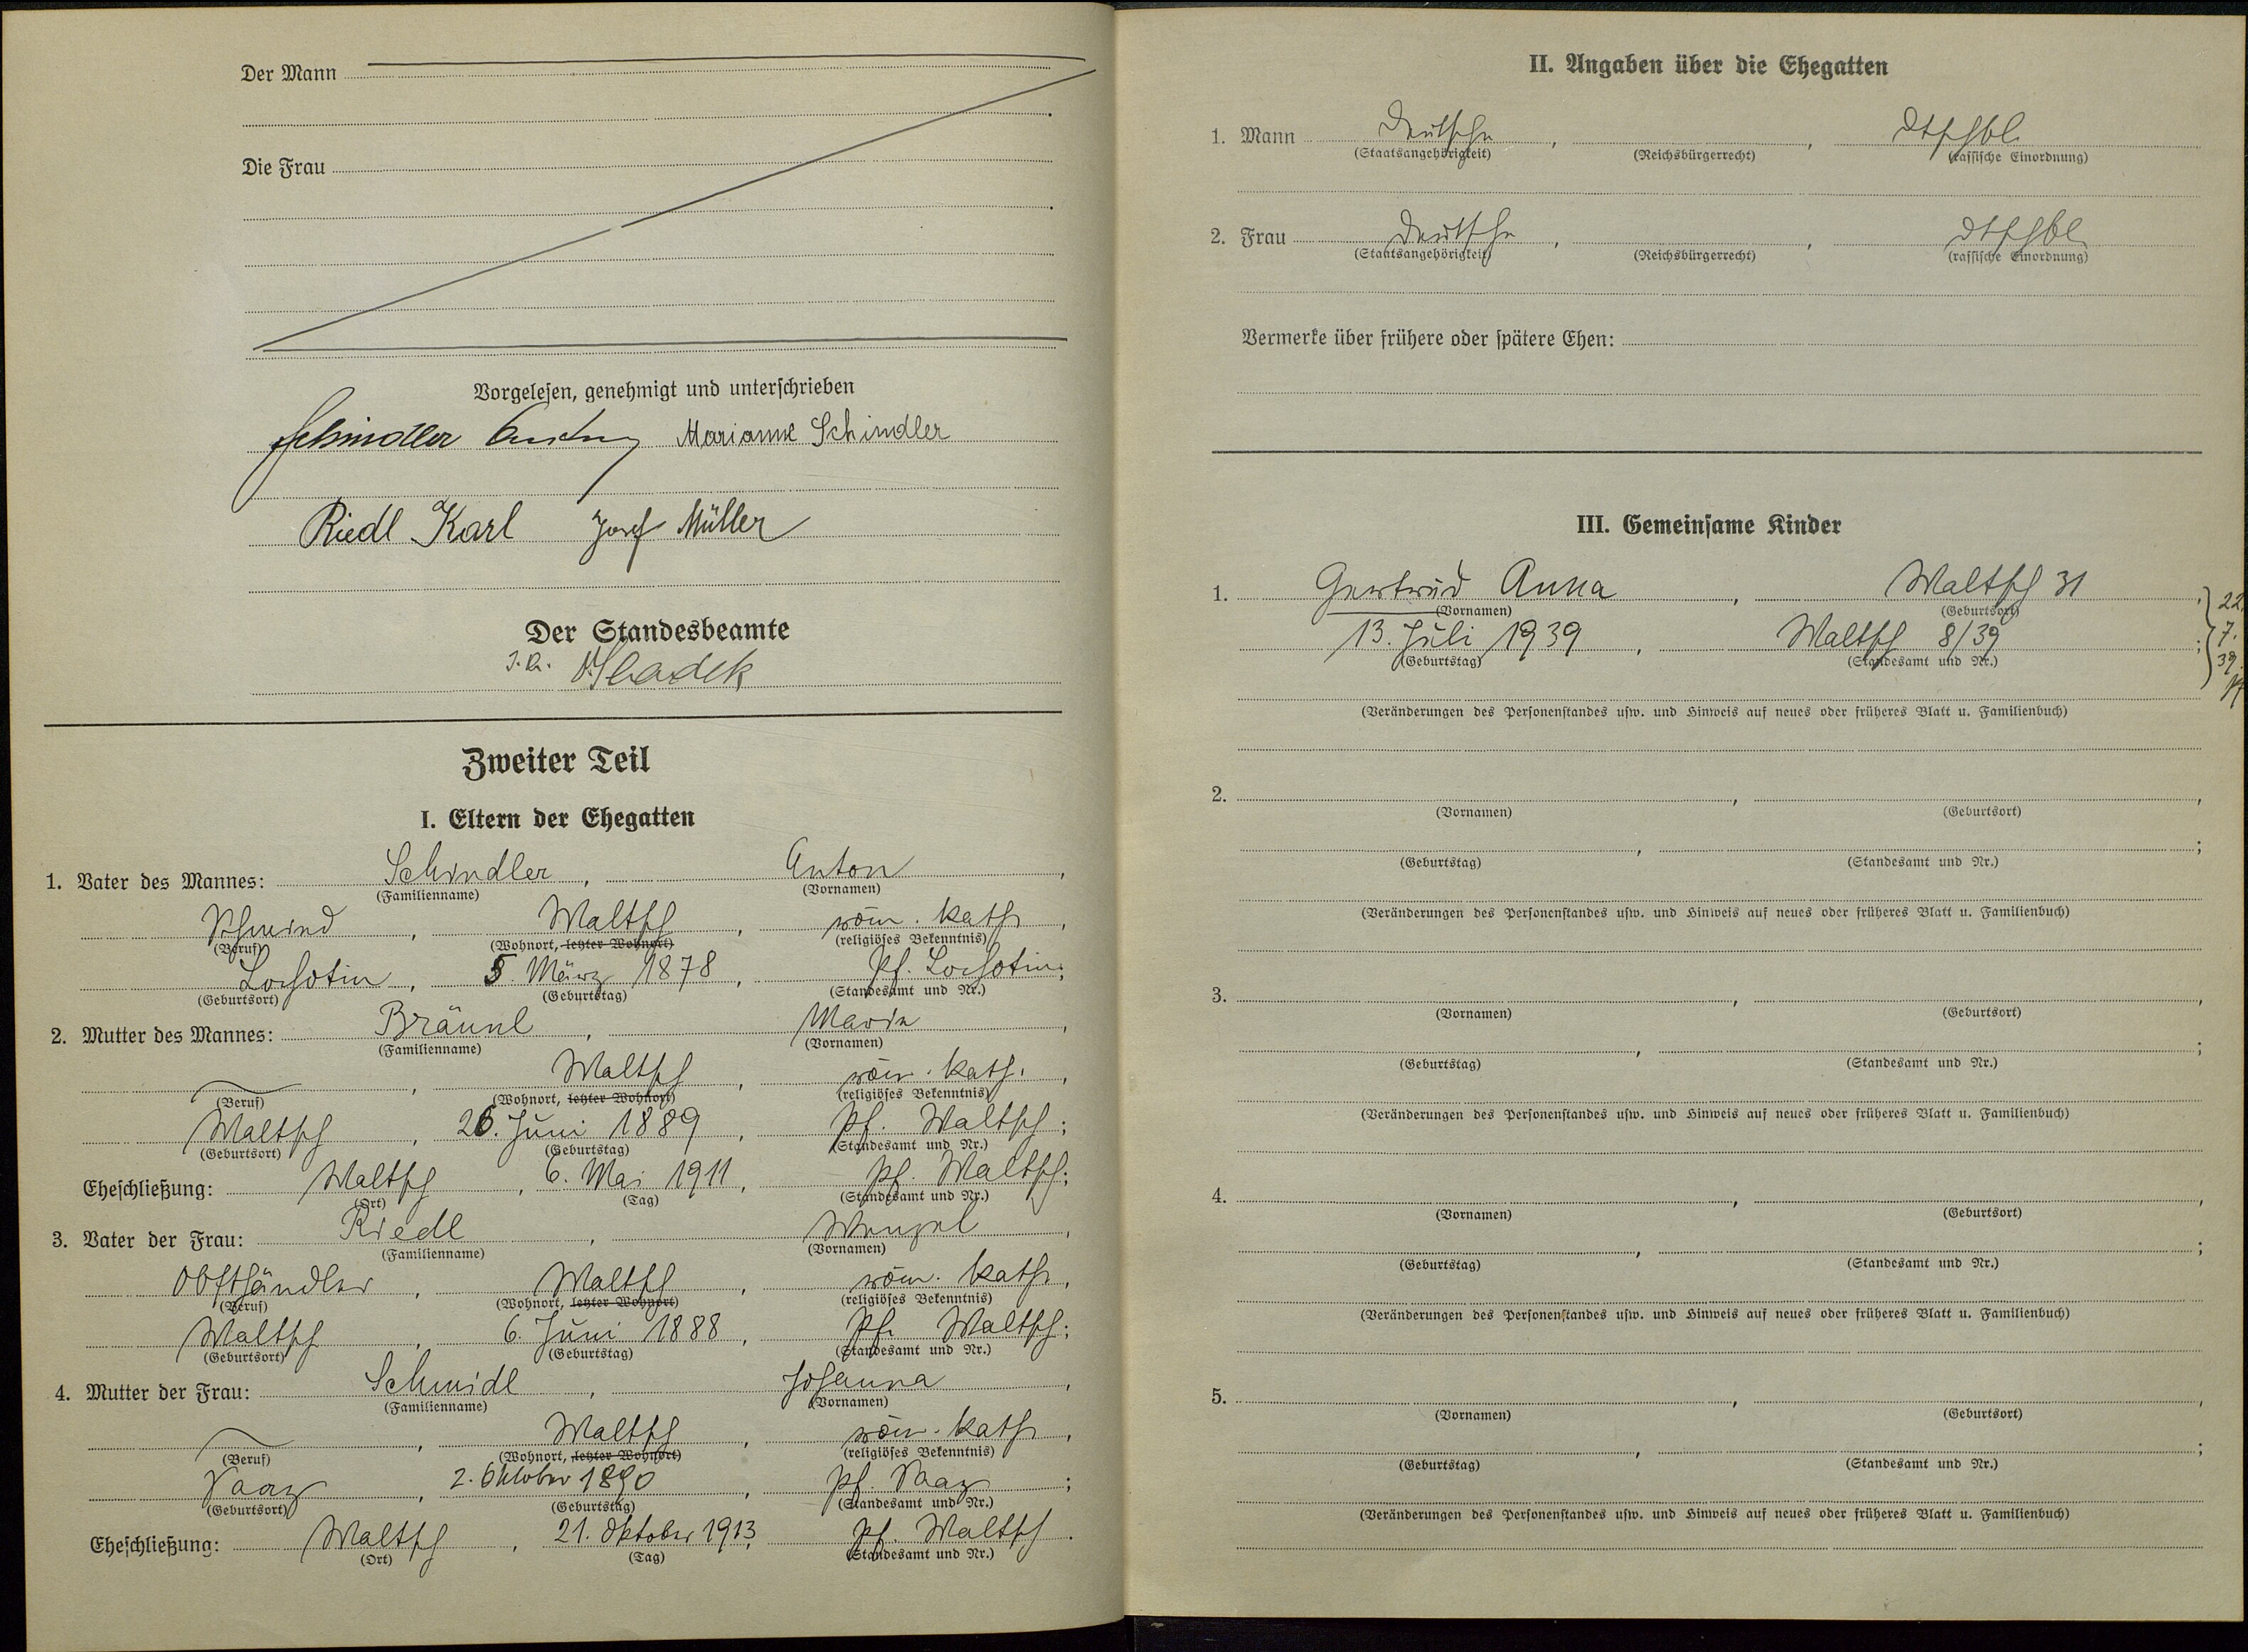 Der Mann
Die Frau
Vorgelesen, genehmigt und unterschrieben
Schindler Anton Marianne Schindler
Riedl Karl Josef Müller
Der Standesbeamte
Sladek
Zweiter Teil
I. Eltern der Ehegatten
1. Vater des Mannes: Schindler, Anton,
(Familienname) (Vornamen)
Schmied, Waltsch, röm. kath.,
(Beruf) (Wohnort, letzter Wohnort) (religiöses Bekenntnis)
Lochotin, 5. März 1878, Pf. Lochotin;
(Geburtsort) (Geburtstag) (Standesamt und Nr.)
2. Mutter des Mannes: Bräunl, Marie,
(Familienname) (Vornamen)
Waltsch, röm. kath.,
(Beruf) (Wohnort, letzter Wohnort) (religiöses Bekenntnis)
Waltsch, 26. Juni 1889, Pf. Waltsch;
(Geburtsort) (Geburtstag) (Standesamt und Nr.)
Eheschließung: Waltsch, 6. Mai 1911, Pf. Waltsch;
(Ort) (Tag) (Standesamt und Nr.)
3. Vater der Frau: Riedl, Wenzel,
(Familienname) (Vornamen)
Obsthändler, Waltsch, röm. kath.,
(Beruf) (Wohnort, letzter Wohnort) (religiöses Bekenntnis)
Waltsch, 6. Juni 1888, Pf. Waltsch;
(Geburtsort) (Geburtstag) (Standesamt und Nr.)
4. Mutter der Frau: Schmidl, Johanna,
(Familienname) (Vornamen)
Waltsch, röm. kath.,
(Beruf) (Wohnort, letzter Wohnort) (religiöses Bekenntnis)
Saaz, 2. Oktober 1890, Pf. Saaz;
(Geburtsort) (Geburtstag) (Standesamt und Nr.)
Eheschließung: Waltsch, 21. Oktober 1913, Pf. Waltsch.
(Ort) (Tag) (Standesamt und Nr.)
II. Angaben über die Ehegatten
1. Mann Deutsche, , dtschbl.
(Staatsangehörigkeit) (Reichsbürgerrecht) (rassische Einordnung)
2. Frau Deutsche, , dtschbl.
(Staatsangehörigkeit) (Reichsbürgerrecht) (rassische Einordnung)
Vermerke über frühere oder spätere Ehen:
III. Gemeinsame Kinder
1. Gertrud Anna, Waltsch 31,
(Vornamen) (Geburtsort)
13. Juli 1939, Waltsch 8/39;
(Geburtstag) (Standesamt und Nr.)
22.
7.
39.
(Veränderungen des Personenstandes usw. und Hinweis auf neues oder früheres Blatt u. Familienbuch)
2. , ,
(Vornamen) (Geburtsort)
, ;
(Geburtstag) (Standesamt und Nr.)
(Veränderungen des Personenstandes usw. und Hinweis auf neues oder früheres Blatt u. Familienbuch)
3. , ,
(Vornamen) (Geburtsort)
, ;
(Geburtstag) (Standesamt und Nr.)
(Veränderungen des Personenstandes usw. und Hinweis auf neues oder früheres Blatt u. Familienbuch)
4. , ,
(Vornamen) (Geburtsort)
, ;
(Geburtstag) (Standesamt und Nr.)
(Veränderungen des Personenstandes usw. und Hinweis auf neues oder früheres Blatt u. Familienbuch)
5. , ,
(Vornamen) (Geburtsort)
, ;
(Geburtstag) (Standesamt und Nr.)
(Veränderungen des Personenstandes usw. und Hinweis auf neues oder früheres Blatt u. Familienbuch)